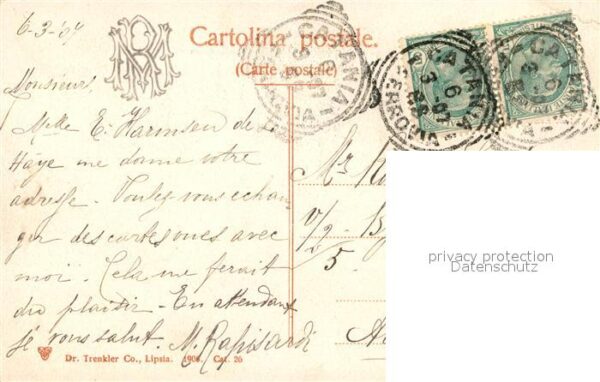 6-3-07
Cartolina postale.
(Carte postale)
CATANIA
FERROVIA
CATANIA
6 3-07
FERROVIA
CATANIA
Monsieur,
Mlle E. Harmsen de La
Haye me donne votre
adresse. Voulez-vous echan
ger des cartes vues avec
moi. Cela me ferait
du plaisir - En attendant
je vous salut. M. Rapisardi
Mr
V/2
5
privacy protection
Datenschutz
Dr. Trenkler Co., Lipsia. 1906. Cat. 26